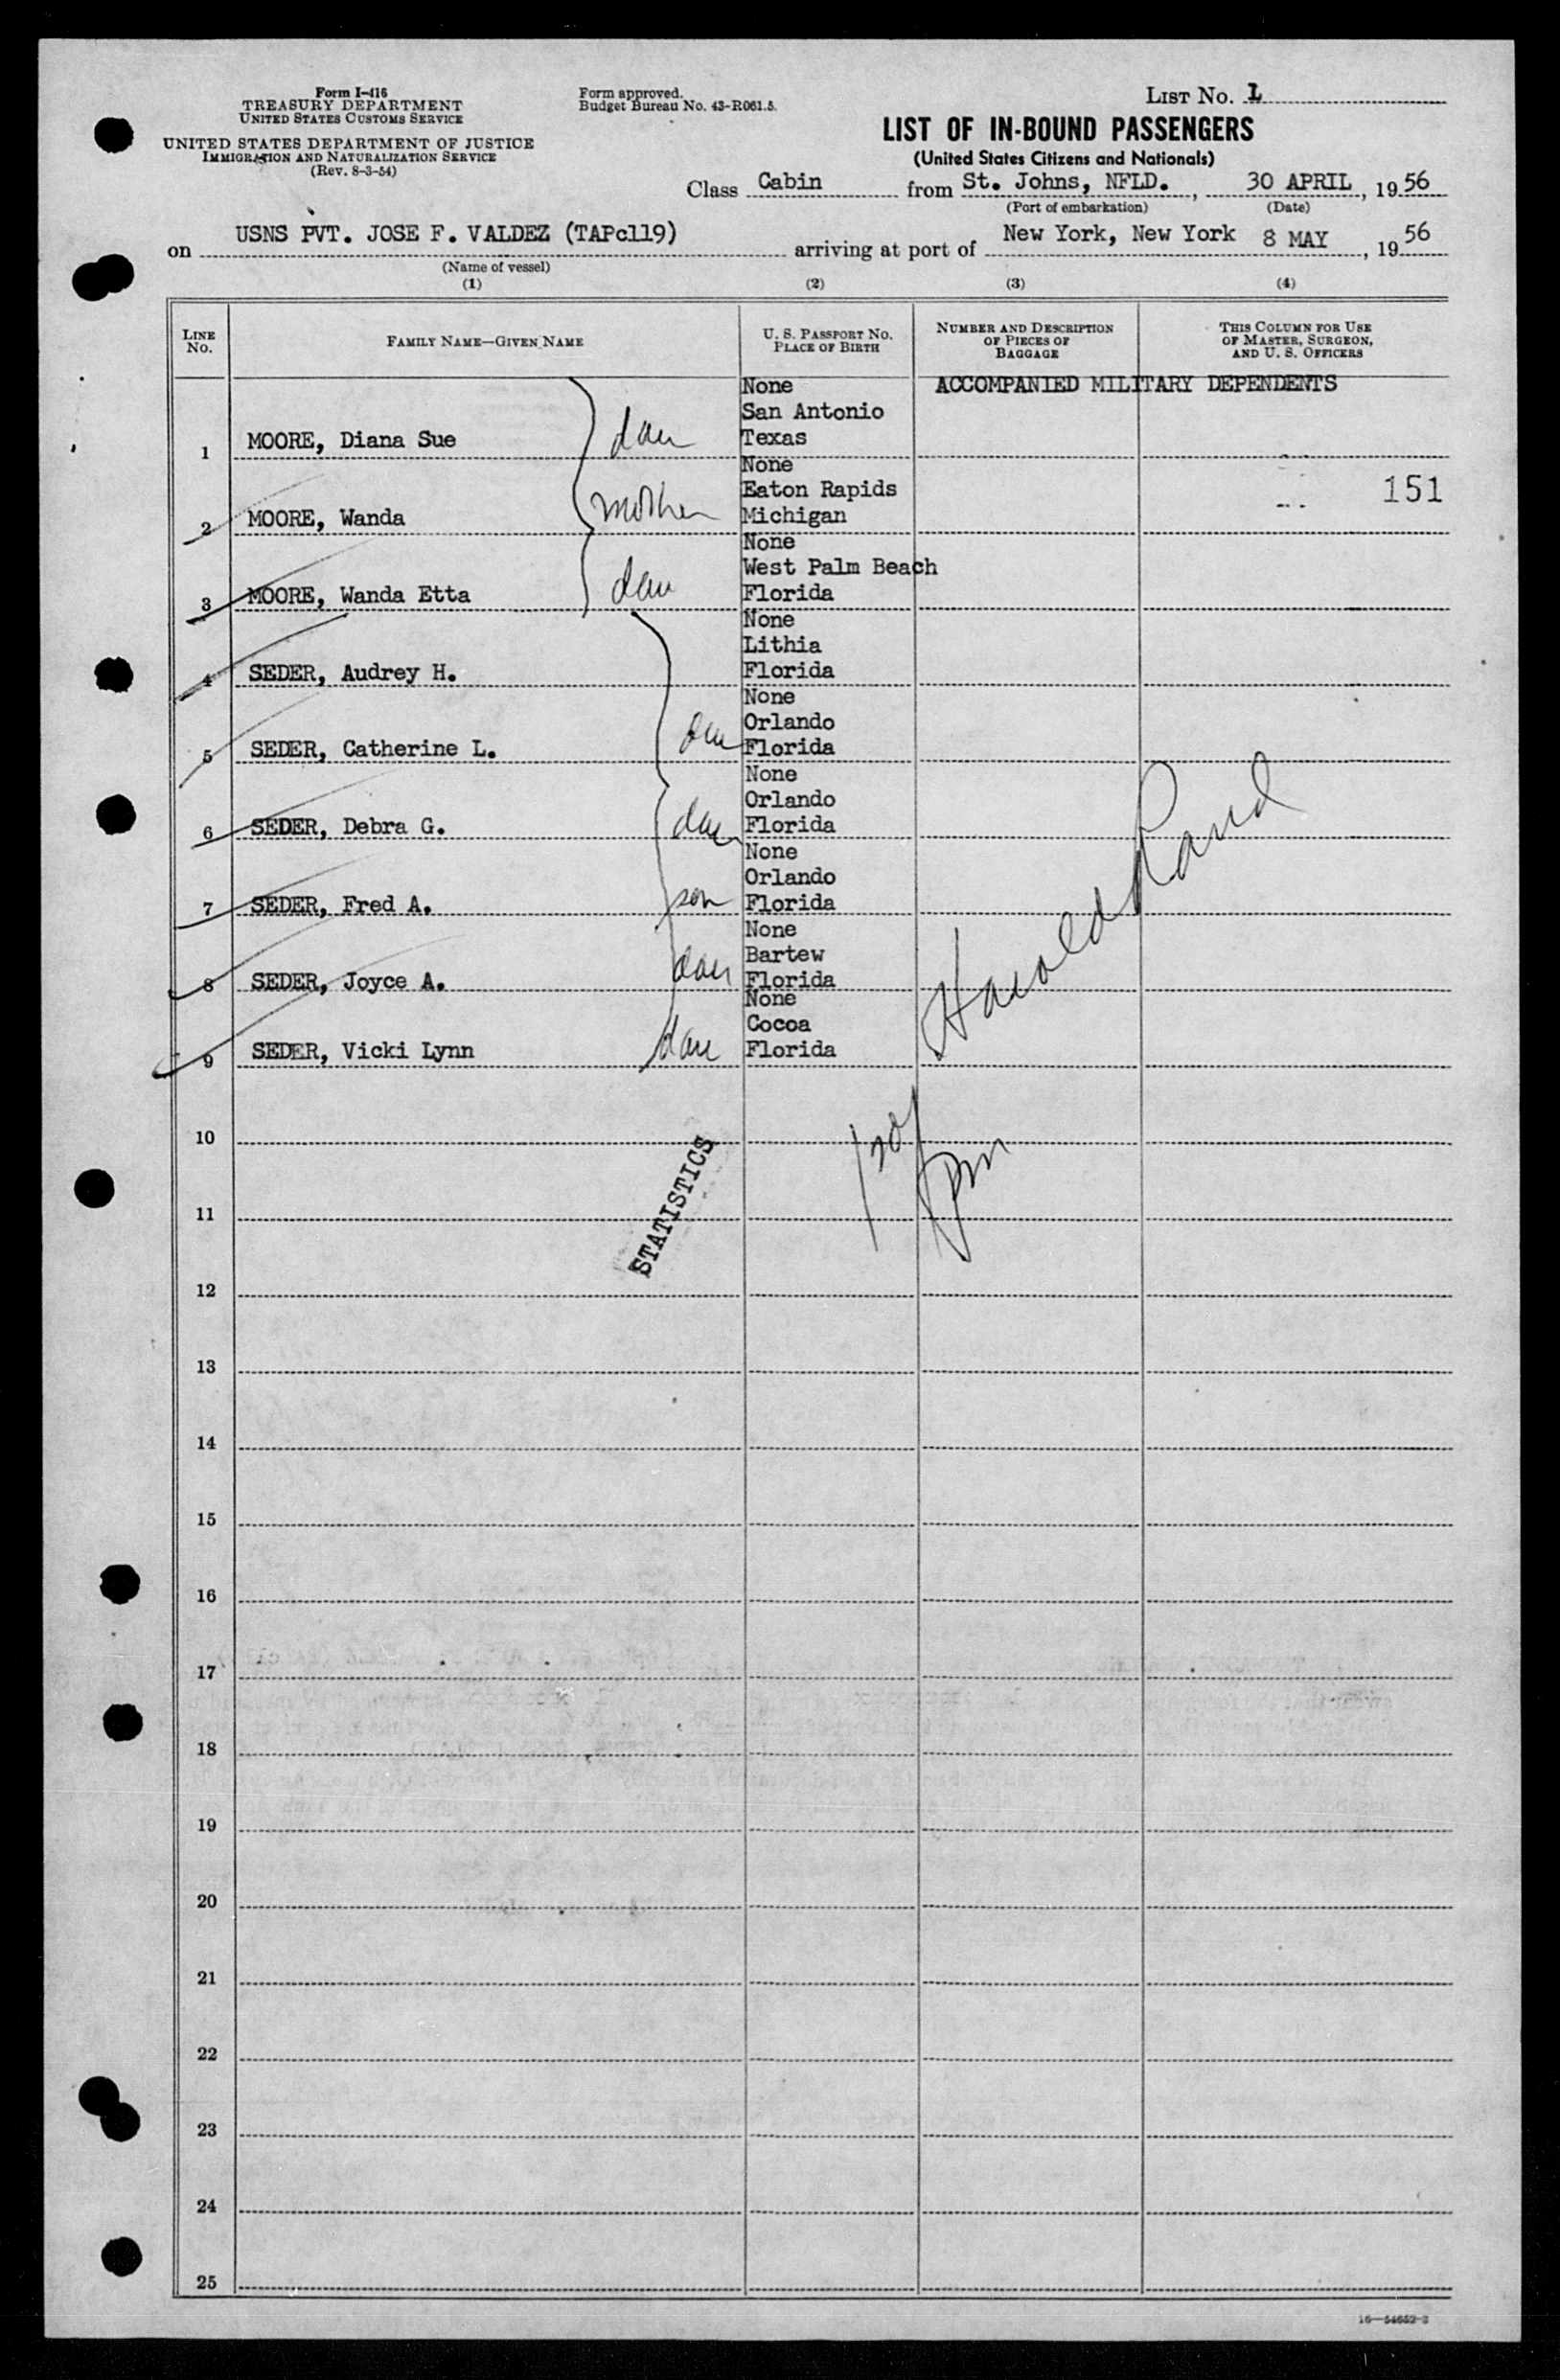 Form I-416
TREASURY DEPARTMENT
UNITED STATES CUSTOMS SERVICE
UNITED STATES DEPARTMENT OF JUSTICE
IMMIGRATION AND NATURALIZATION SERVICE
(Rev. 8-3-54)
Form approved.
Budget Bureau No. 43-R061.5.
LIST NO. 1
LIST OF IN-BOUND PASSENGERS
(United States Citizens and Nationals)
Class Cabin from St. Johns, NFLD., 30 APRIL, 1956
(Port of embarkation) (Date)
on USNS PVT. JOSE F. VALDEZ (TAPc119) arriving at port of New York, New York 8 MAY, 1956
(Name of vessel)
(1) (2) (3) (4)
LINE NO.
FAMILY NAME—GIVEN NAME
U. S. PASSPORT NO.
PLACE OF BIRTH
NUMBER AND DESCRIPTION
OF PIECES OF
BAGGAGE
THIS COLUMN FOR USE
OF MASTER, SURGEON,
AND U. S. OFFICERS
ACCOMPANIED MILITARY DEPENDENTS
None
San Antonio
1 MOORE, Diana Sue dau Texas
None
Eaton Rapids
151
2 MOORE, Wanda mother Michigan
None
West Palm Beach
3 MOORE, Wanda Etta dau Florida
None
Lithia
4 SEDER, Audrey H. Florida
None
Orlando
5 SEDER, Catherine L. dau Florida
None
Orlando
6 SEDER, Debra G. dau Florida
None
Orlando
7 SEDER, Fred A. son Florida
None
Bartew
8 SEDER, Joyce A. dau Florida
None
Cocoa
9 SEDER, Vicki Lynn dau Florida
Harold Land
10
pm
STATISTICS
11
12
13
14
15
16
17
18
19
20
21
22
23
24
25
16—54652-2